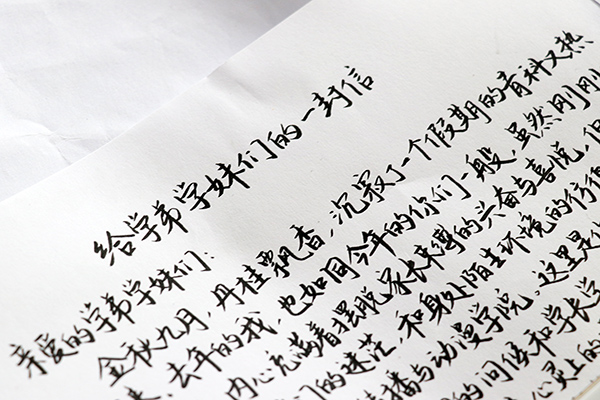 给学弟学妹们的一封信
亲爱的学弟学妹们:
金秋九月，丹桂飘香，沉寂了一个假期的青科又热
去年的我，也如同今年的你们一般，虽然刚刚
内心充满着摆脱家长束缚的兴奋与喜悦，但
们的迷茫，和身处陌生环境的彷徨
播与动漫学院、这里是
的问候和学长学
心灵上的